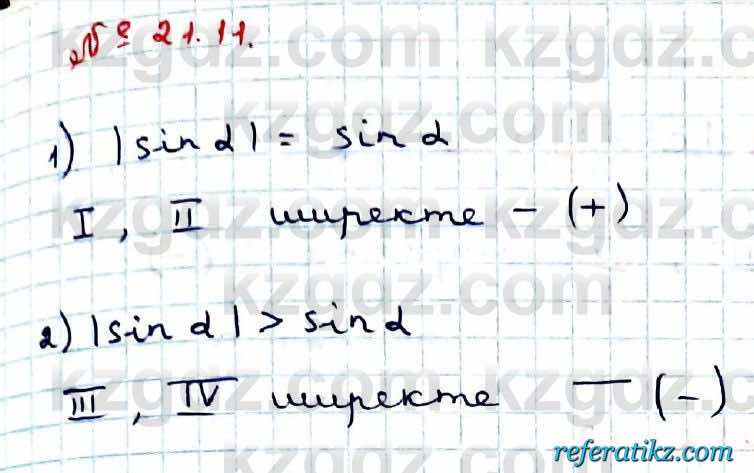 № 21.11.
1) |sin α| = sin α
I, II ширекте - (+)
2) |sin α| > sin α
III, IV ширекте — (-)
referatikz.com